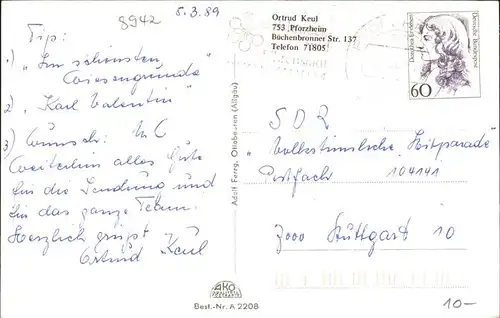 8942
5.3.89
Tip:
1) "Im schönsten
Wiesengrunde"
2) "Karl Valentin"
3) Wunsch:
Weiterhin alles Gute
für die Sendung und
für das ganze Team.
Herzlich grüßt
Ortrud Keul
Ortrud Keul
753 Pforzheim
Büchenbronner Str. 137
Telefon 71805
Deutsche Bundespost
60
SDR
"Volkstümliche Hitparade"
Postfach 104141
7000 Stuttgart 10
Adolf Ferrg, Ottobeuren (Allgäu)
AKO
Best.-Nr. A 2208
10-